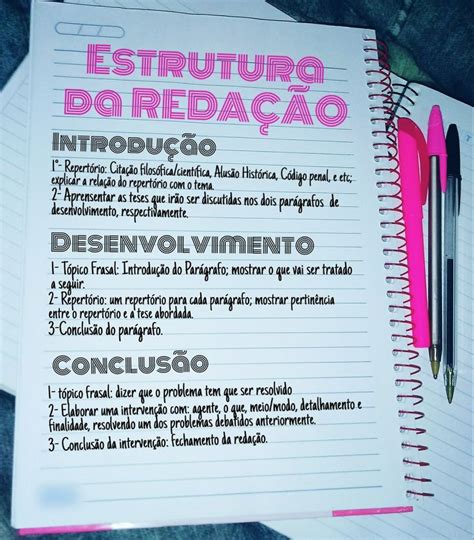 Estrutura
da REDAÇÃO
Introdução
1°- Repertório: Citação filosófica/científica, Alusão Histórica, Código penal, e etc;
explicar a relação do repertório com o tema.
2- Aprensentar as teses que irão ser discutidas nos dois parágrafos de
desenvolvimento, respectivamente.
Desenvolvimento
1- Tópico Frasal: Introdução do Parágrafo; mostrar o que vai ser tratado
a seguir.
2- Repertório: um repertório para cada parágrafo; mostrar pertinência
entre o repertório e a tese abordada.
3-Conclusão do parágrafo.
Conclusão
1- tópico Frasal: dizer que o problema tem que ser resolvido
2- Elaborar uma intervenção com: agente, o que, meio/modo, detalhamento e
finalidade, resolvendo um dos problemas debatidos anteriormente.
3- Conclusão da intervenção: Fechamento da redação.